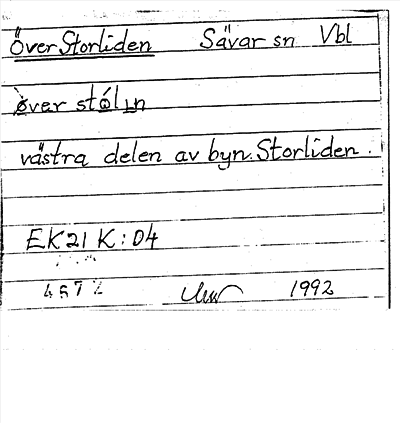 ÖverStorliden Sävar sn Vbl
ø̀ver stó̱lı̱n
västra delen av byn Storliden.
EK21 K:04
1992